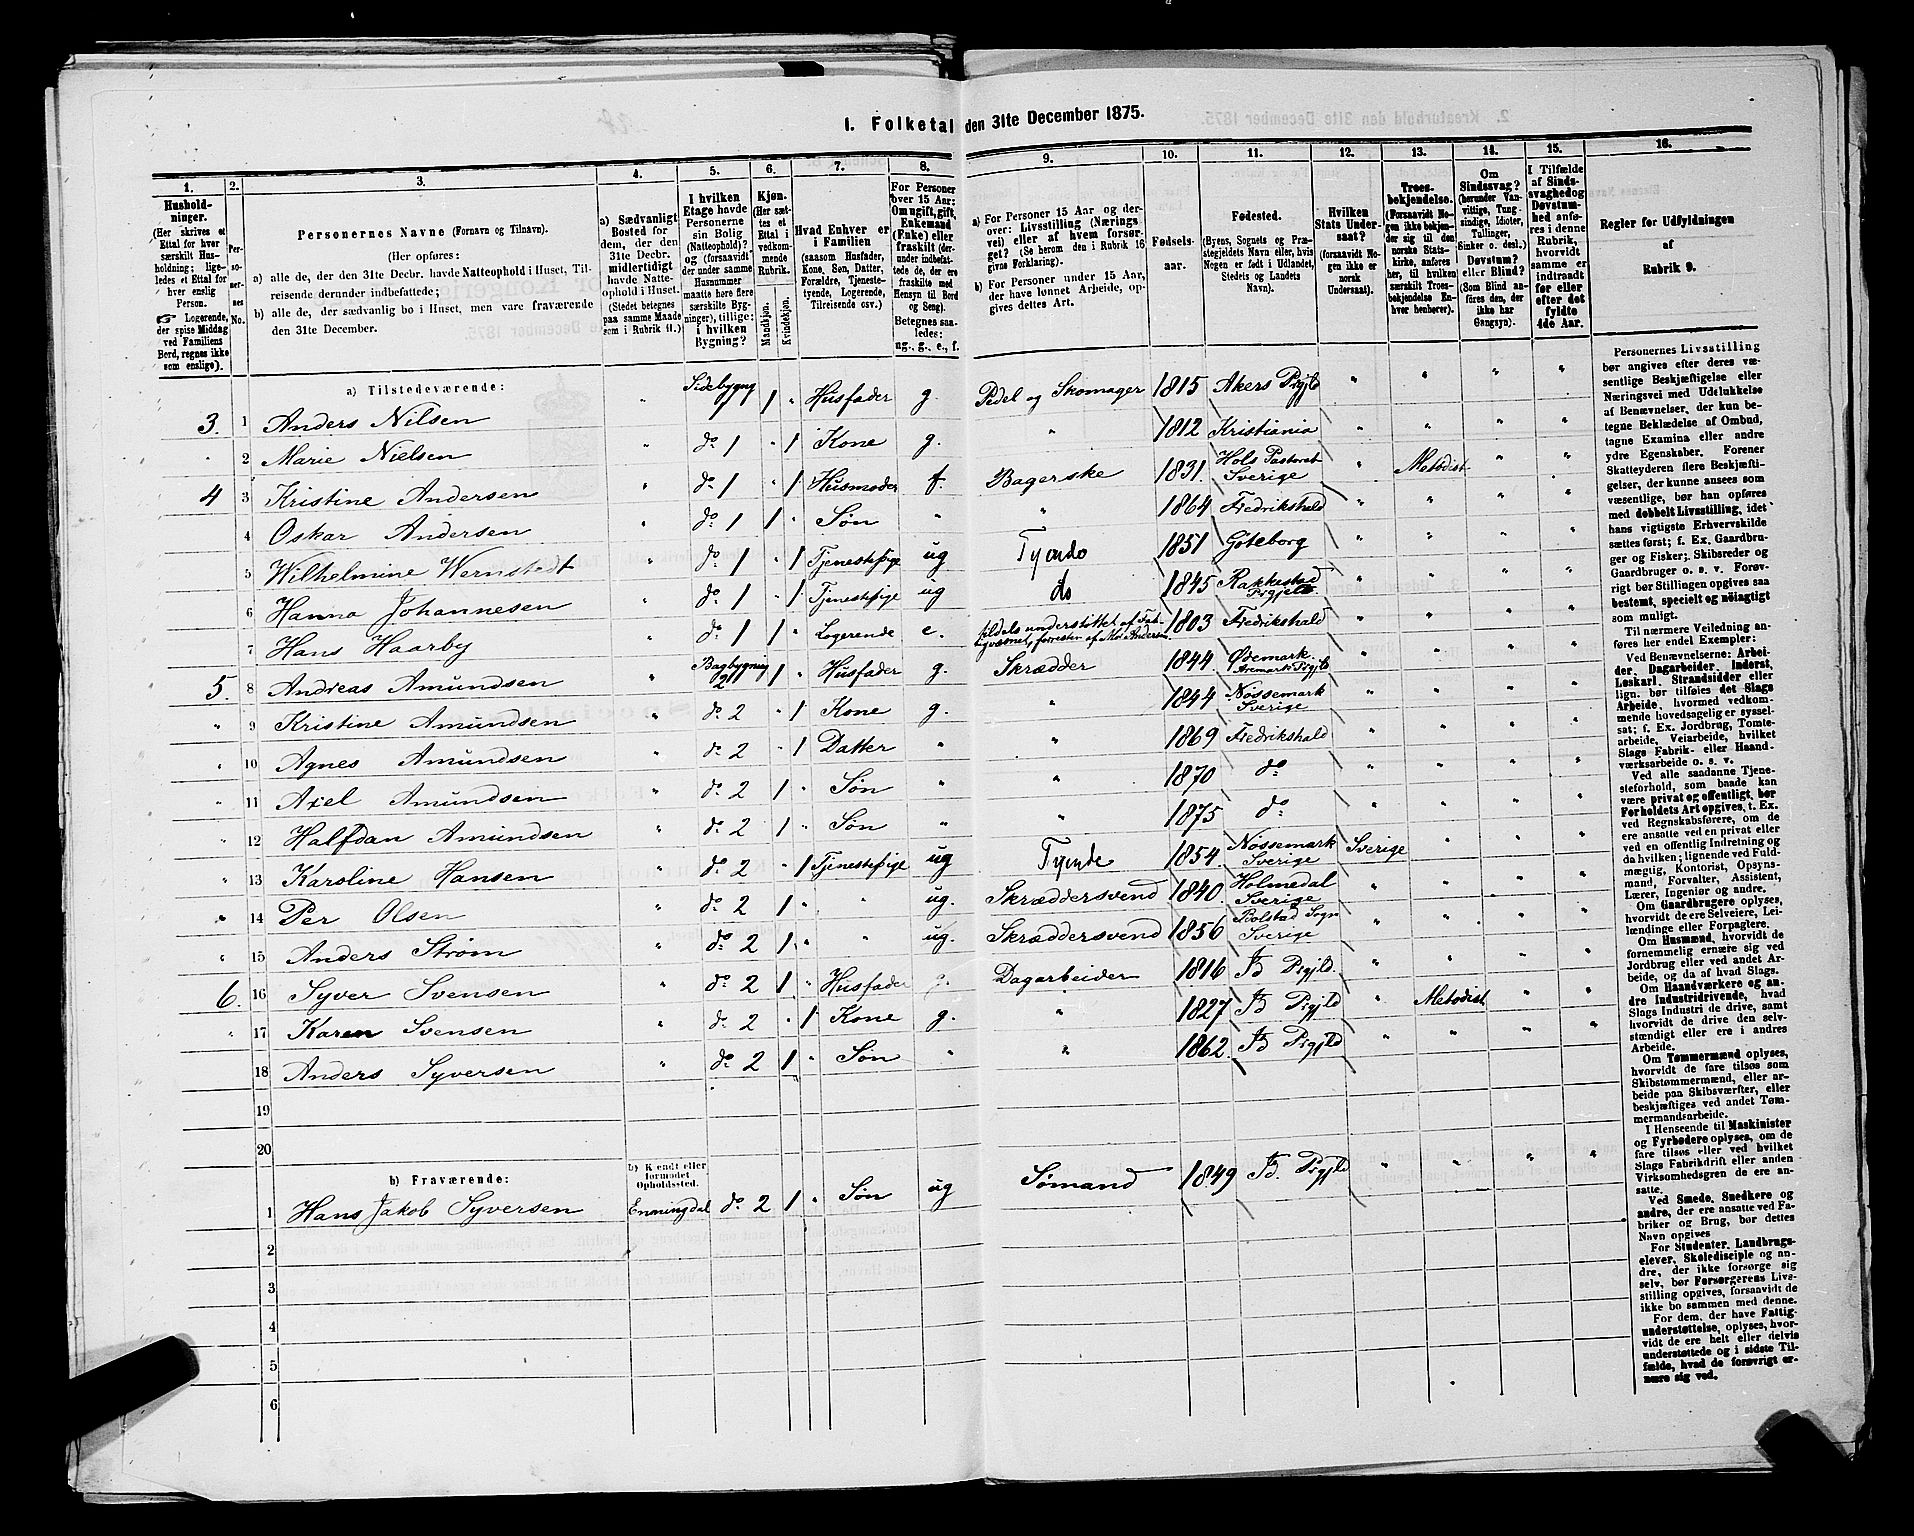 I. Folketal den 31te December 1875.
1. 2. 3. 4. 5. 6. 7. 8. 9. 10. 11. 12. 13. 14. 15. 16.
Hushold-
ninger.
(Her skrives et
Ettal for hver
særskilt Hus-
holdning; lige-
ledes et Ettal for
hver enslig
Person.
☞ Logerende,
der spise Middag
ved Familiens
Bord, regnes ikke
som enslige).
Per-
so-
ner-
nes
No.
Personernes Navne (Fornavn og Tilnavn).
(Her opføres:
a) alle de, der den 31te Decbr. havde Natteophold i Huset, Til-
reisende derunder indbefattede;
b) alle de, der sædvanlig bo i Huset, men vare fraværende
den 31te December.
a) Sædvanligt
Bosted for
dem, der den
31te Decbr.
midlertidigt
havde Natte-
ophold i Huset.
(Stedet betegnes
paa samme Maade
som i Rubrik 11.)
I hvilken
Etage havde
Personerne
sin Bolig
(Natteophold)?
og (forsaavidt
der under samme
Husnummer
maatte høre flere
særskilte Byg-
ninger), tillige:
i hvilken
Bygning?
Kjøn.
(Her sæt-
tes et
Ettal i
vedkom-
mende
Rubrik.
Mandkjøn.
Kvindekjøn.
Hvad Enhver er
i Familien
(saasom Husfader,
Kone, Søn, Datter,
Forældre, Tjeneste-
tyende, Logerende,
Tilreisende osv.)
For Personer
over 15 Aar:
Om ugift, gift,
Enkemand
(Enke) eller
fraskilt (der-
under indbefat-
tede de, der ere
fraskilte med
Hensyn til Bord
og Seng).
Betegnes saa-
ledes:
ug., g., e., f.
a) For Personer 15 Aar og der-
over: Livsstilling (Nærings-
vei) eller af hvem forsør-
get? (Se herom den i Rubrik 16
givne Forklaring).
b) For Personer under 15 Aar,
der have lønnet Arbeide, op-
gives dettes Art.
Fødsels-
aar.
Fødested.
(Byens, Sognets og Præ-
stegjeldets Navn eller, hvis
Nogen er født i Udlandet,
Stedets og Landets
Navn).
Hvilken
Stats Under-
saat?
(forsaavidt No-
gen ikke er
norsk
Undersaat).
Troes-
bekjendelse.
(Forsaavidt No-
gen ikke bekjen-
der sig til den
norske Stats-
kirke, anføres
her, til hvilken
særskilt Troes-
bekjendelse En-
hver henhører).
Om
Sindssvag?
(herunder Van-
vittige, Tung-
sindige, Idioter,
Tullinger,
Sinker o. desl.)
Døvstum?
eller Blind?
(Som Blind an-
føres den, der
ikke har
Gangsyn).
I Tilfælde
af Sinds-
svaghed og
Døvstum-
hed anfø-
res i denne
Rubrik,
hvorvidt
samme er
indtraadt
før eller
efter det
fyldte
4de Aar.
Regler for Udfyldningen
af
Rubrik 9.
a) Tilstedeværende:
3. 1 Anders Nilsen " Sidebygng 1 1 " Husfader g. Pedel og Skomager 1815 Akers Prgjld " " " "
" 2 Marie Nielsen " do 1 " 1 Kone g. " 1812 Kristiania " " " "
4 3 Kristine Andersen " do 1 " 1 Husmoder f. Bagerske 1831. Hols Pastorat Sverige " Metodist " "
4 Oskar Andersen " do 1 1 " Søn " " 1864 Fredrikshald " " " "
5 Wilhelmine Wernstedt " do 1 " 1 Tjenestepige ug Tyende 1851 Göteborg " " " "
6 Hanna Johannesen " do 1 " 1 Tjenestepige ug do 1845 Rakkestad Prgjeld. " " " "
7 Hans Haarby " do 1 1 " Logerende e. tildels understöttet af Fat-
tigvæsnet, forresten af 1803 Fredrikshald " " " "
5. 8 Andreas Amundsen " Bagbygning 2 1 " Husfader g. Skrædder 1844. Ødemark. Aremark Prgjld " " " "
" 9 Kristine Amundsen " do 2 " 1 Kone g. " 1844 Nössemark Sverige " " " "
" 10 Agnes Amundsen " do 2 " 1 Datter " " 1869 Fredrikshald " " " "
" 11 Axel Amundsen " do 2 1 " Søn " " 1870 do " " " "
" 12 Halfdan Amundsen " do 2 1 " Søn " " 1875 do " " " "
" 13 Karoline Hansen " do 2 " 1 Tjenestepige ug Tyende 1854. Nössemark Sverige Sverige " " "
" 14 Per Olsen " do 2 1 " " ug. Skræddersvend 1840. Holmedal Sverige " " " "
" 15 Anders Strøm " do 2 1 " " ug. Skræddersvend 1856 Bolstad Sogn Sverige " " " "
6. 16 Syver Svensen " do 2 1 " Husfader g. Dagarbeider 1816 Id Prgjld. " " " "
" 17 Karen Svensen " do 2 " 1 Kone g. " 1827 Id Prgjld " Metodist " "
18 Anders Syversen " do 2 1 " Søn " " 1862 Id Prgjld " " " "
19
20
b) Fraværende:
b) Kjendt eller
formodet
Opholdssted.
1 Hans Jakob Syversen Enningdal do 2 1 " Søn ug Sømand 1849 Id. Prgjld " " " "
2
3
4
5
6
Personernes Livsstilling
bør angives efter deres væ-
sentlige Beskjæftigelse eller
Næringsvei med Udelukkelse
af Benævnelser, der kun be-
tegne Beklædelse af Ombud,
tagne Examina eller andre
ydre Egenskaber. Forener
Skatteyderen flere Beskjæfti-
gelser, der kunne ansees som
væsentlige, bør han opføres
med dobbelt Livsstilling, idet
hans vigtigste Erhvervskilde
sættes først; f. Ex. Gaardbru-
ger og Fisker; Skibsreder og
Gaardbruger o. s. v. Forøv-
rigt bør Stillingen opgives saa
bestemt, specielt og nøiagtigt
som muligt.
Til nærmere Veiledning an-
føres her endel Exempler:
Ved Benævnelserne: Arbei-
der, Dagarbeider, Inderst,
Løskarl, Strandsidder eller
lign. bør tilføies det Slags
Arbeide, hvormed vedkom-
mende hovedsagelig er syssel-
sat; f. Ex. Jordbrug, Tomte-
arbeide, Veiarbeide, hvilket
Slags Fabrik- eller Haand-
værksarbeide o. s. v.
Ved alle saadanne Tjene-
steforhold, som baade kan
være privat og offentligt, bør
Forholdets Art opgives, t. Ex.
ved Regnskabsførere, om de
ere ansatte ved en privat eller
ved en offentlig Indretning og
da hvilken; lignende ved Fuld-
mægtig, Kontorist, Opsyns-
mand, Forvalter, Assistent,
Lærer, Ingeniør og andre.
Om Gaardbrugere oplyses,
hvorvidt de ere Selveiere, Lei-
lændinge eller Forpagtere.
Om Husmænd, hvorvidt de
fornemmelig ernære sig ved
Jordbrug eller ved andet Ar-
beide, og da af hvad Slags.
Om Haandværkere og an-
dre Industridrivende, hvad
Slags Industri de drive, samt
hvorvidt de drive den selv-
stændigt eller ere i andres
Arbeide.
Om Tømmermænd oplyses,
hvorvidt de fare tilsøs som
Skibstømmermænd, eller ar-
beide paa Skibsværfter, eller
beskjæftiges ved andet Tøm-
mermandsarbeide.
I Henseende til Maskinister
og Fyrbødere oplyses, om de
fare tilsøs eller ved hvilket
Slags Fabrikdrift eller anden
Virksomhedsgren de ere an-
satte.
Ved Smede, Snedkere og
andre, der ere ansatte ved Fa-
briker og Brug, bør dettes
Navn opgives
For Studenter, Landbrugs-
elever, Skoledisciple og an-
dre, der ikke forsørge sig
selv, bør Forsørgerens Livs-
stilling opgives, forsaavidt de
ikke bo sammen med denne.
For dem, der have Fattig-
understøttelse, oplyses, hvor-
vidt de ere helt eller delvis
understøttede og i sidste Til-
fælde, hvad de forøvrigt er-
nære sig ved.